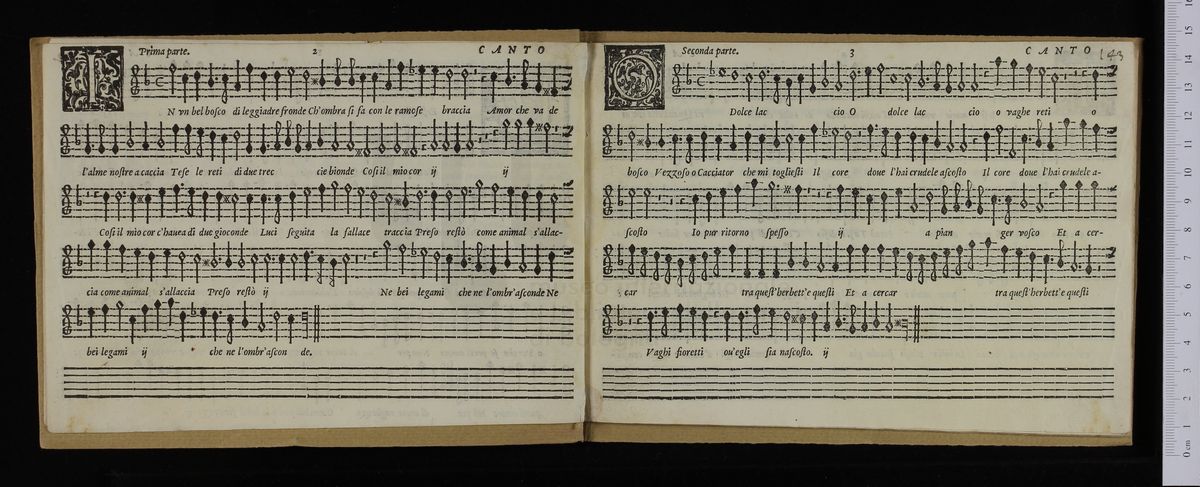 Prima parte. 2 CANTO
IN vn bel bosco di leggiadre fronde Ch'ombra si fa con le ramose braccia Amor che va de
l'alme nostre a caccia Tese le reti di due trec cie bionde Cosi il mio cor ij ij
Cosi il mio cor c'hauea di due gioconde Luci seguita la fallace traccia Preso restò come animal s'allac-
cia come animal s'allaccia Preso restò ij Ne bei legami che ne l'ombr'asconde Ne
bei legami ij che ne l'ombr'ascon de.
Seconda parte. 3 CANTO 143
O Dolce lac cio O dolce lac cio o vaghe reti o
bosco Vezzoso o Cacciator che mi togliesti Il core doue l'hai crudele ascosto Il core doue l'hai crudele a-
scosto Io pur ritorno spesso ij a pian ger vosco Et a cer-
car tra quest'herbett'e questi Et a cercar tra quest'herbett'e questi
Vaghi fioretti ou'egli sia nascosto. ij
0 cm 1 2 3 4 5 6 7 8 9 10 11 12 13 14 15 16